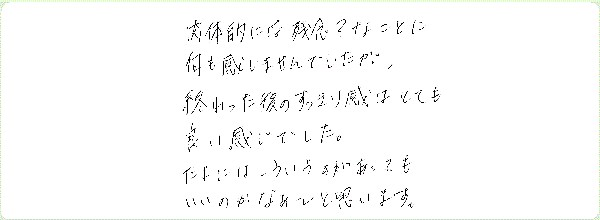 実体的には残念?なことに
何も感じませんでしたが、
終わった後のすっきり感はとても
良い感じでした。
たまにはこういうのがあっても
いいのかなぁ〜と思います。